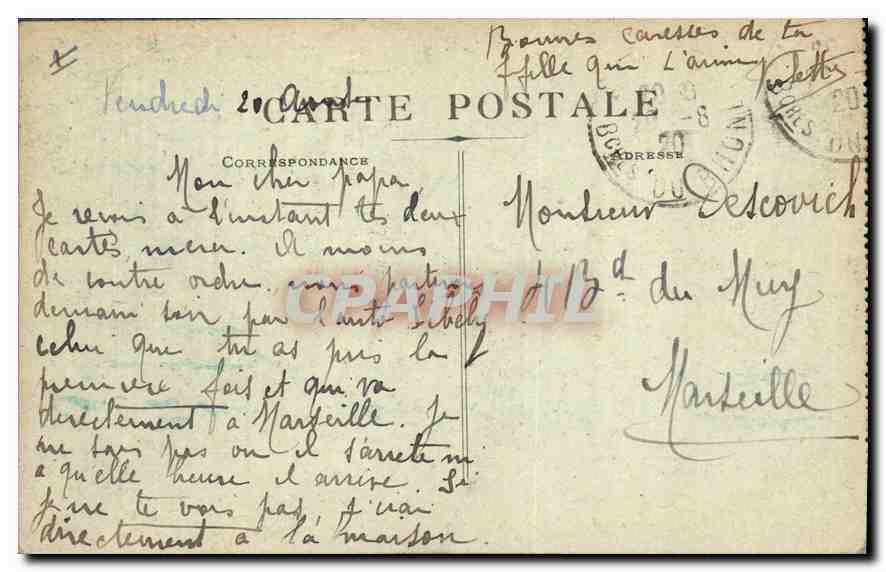 Bonnes caresses de ta
fille qui t'aime
Vendredi 20 Aout
CARTE POSTALE
CORRESPONDANCE
ADRESSE
Mon cher papa,
Je reçois à l'instant tes deux
cartes, merci. A moins
de contre ordre nous partirons
demain soir par l'auto
celui que tu as pris la
première fois et qui va
directement à Marseille. Je
ne sais pas ou il s'arrete ni
a qu'elle heure il arrive. Si
je ne te vois pas, j'irai
directement à la maison.
Monsieur Descovich
7 Bd du Muy
Marseille
CPAPHIL